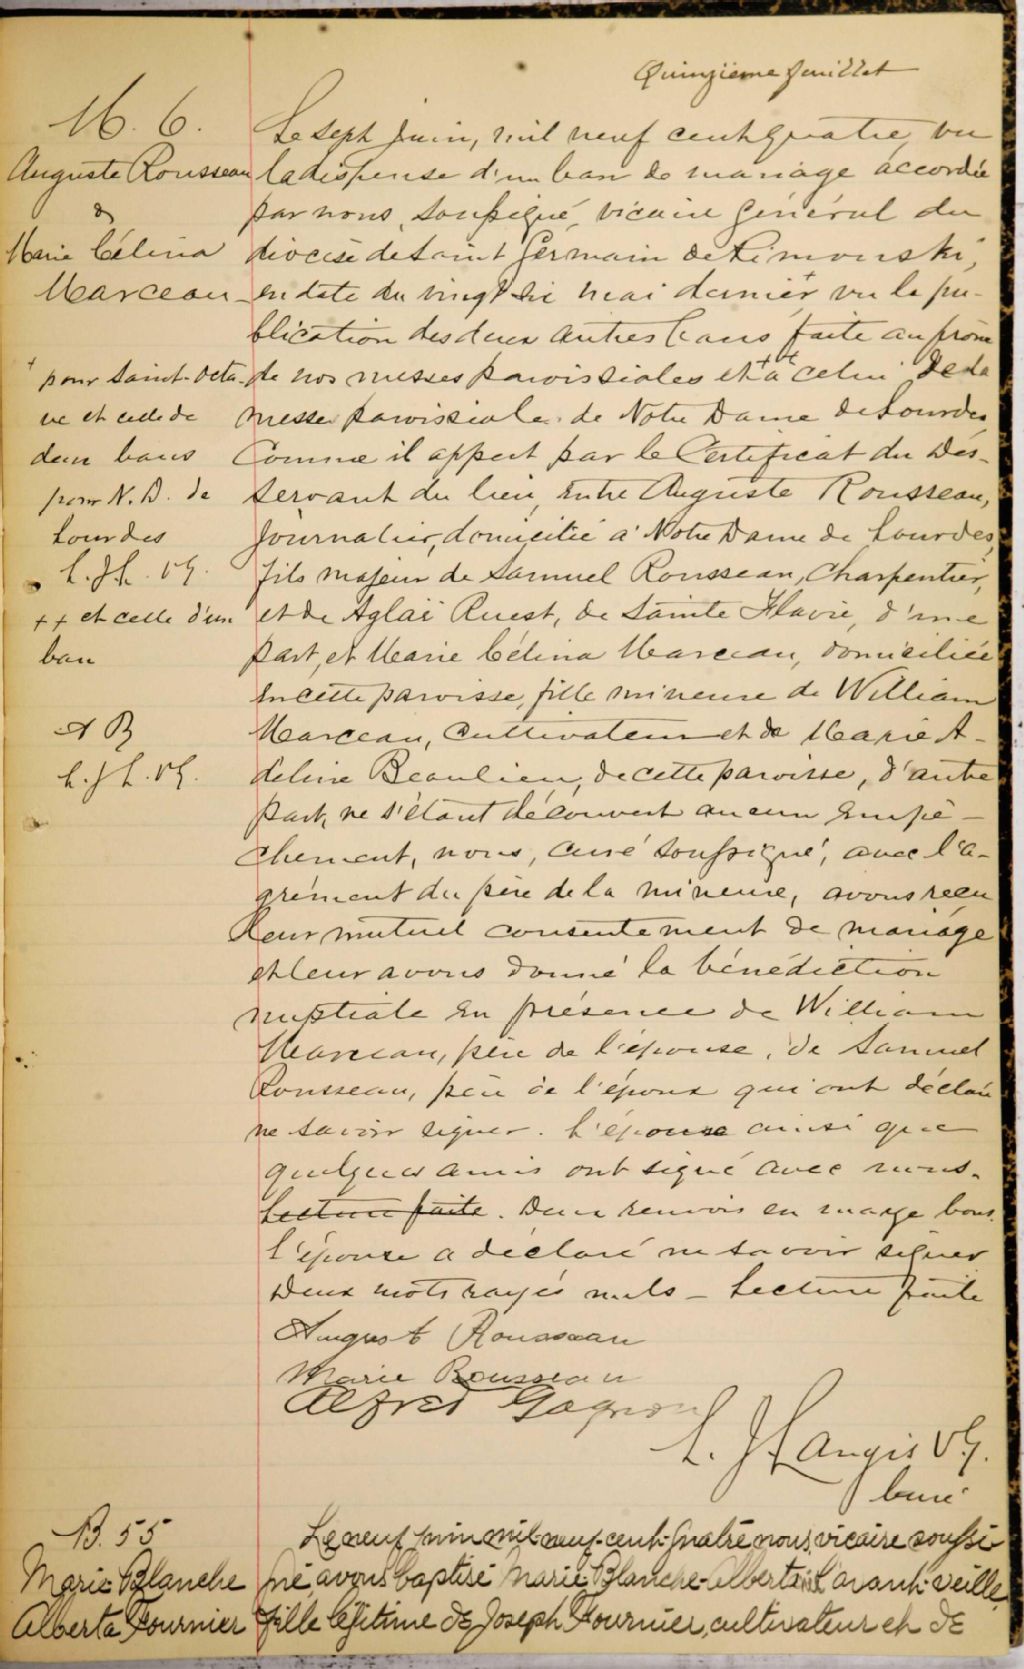 Quinzième feuillet
M. 6.
Auguste Rousseau
&
Marie Célina
Marceau
+ pour Saint-Octa-
ve et celle de
deux bans
pour N. D. de
Lourdes
L. J L. VG.
++ et celle d'un
ban
A R
L. J L. VG.
Le sept Juin, mil neuf cent quatre, vu
la dispense d'un ban de mariage accordée
par nous, soussigné, vicaire général du
diocèse de Saint Germain de Rimouski,
en date du vingt six mai dernier + vu la pu-
blication des deux autres bans faite au prône
de nos messes paroissiales et ++ à celui de la
messe paroissiale de Notre Dame de Lourdes
Comme il appert par le Certificat du Des-
servant du lieu, entre Auguste Rousseau,
Journalier, domicilié à Notre Dame de Lourdes,
fils majeur de Samuel Rousseau, Charpentier,
et de Aglaé Ruest, de Sainte Flavie, d'une
part, et Marie Célina Marceau, domiciliée
en cette paroisse, fille mineure de William
Marceau, Cultivateur et de Marie A-
deline Beaulieu, de cette paroisse, d'autre
part, ne s'étant découvert aucun empê-
chement, nous, curé soussigné, avec l'a-
grément du père de la mineure, avons reçu
leur mutuel consentement de mariage
et leur avons donné la bénédiction
nuptiale en présence de William
Marceau, père de l'épouse, de Samuel
Rousseau, père de l'époux qui ont déclaré
ne savoir signer. L'épouse ainsi que
quelques amis ont signé avec nous.
Lecture faite. Deux renvois en marge bons.
l'épouse a déclaré ne savoir signer
Deux mots rayés nuls - Lecture faite
August Rousseau
Marie Rousseau
Alfred Gagnon
L. J Langis VG.
Curé
B. 55
Marie Blanche
Alberta Fournier
Le neuf juin mil-neuf-cent-quatre nous, vicaire soussi-
gné avons baptisé Marie Blanche-Alberta née l'avant-veille,
fille légitime de Joseph Fournier, cultivateur et de